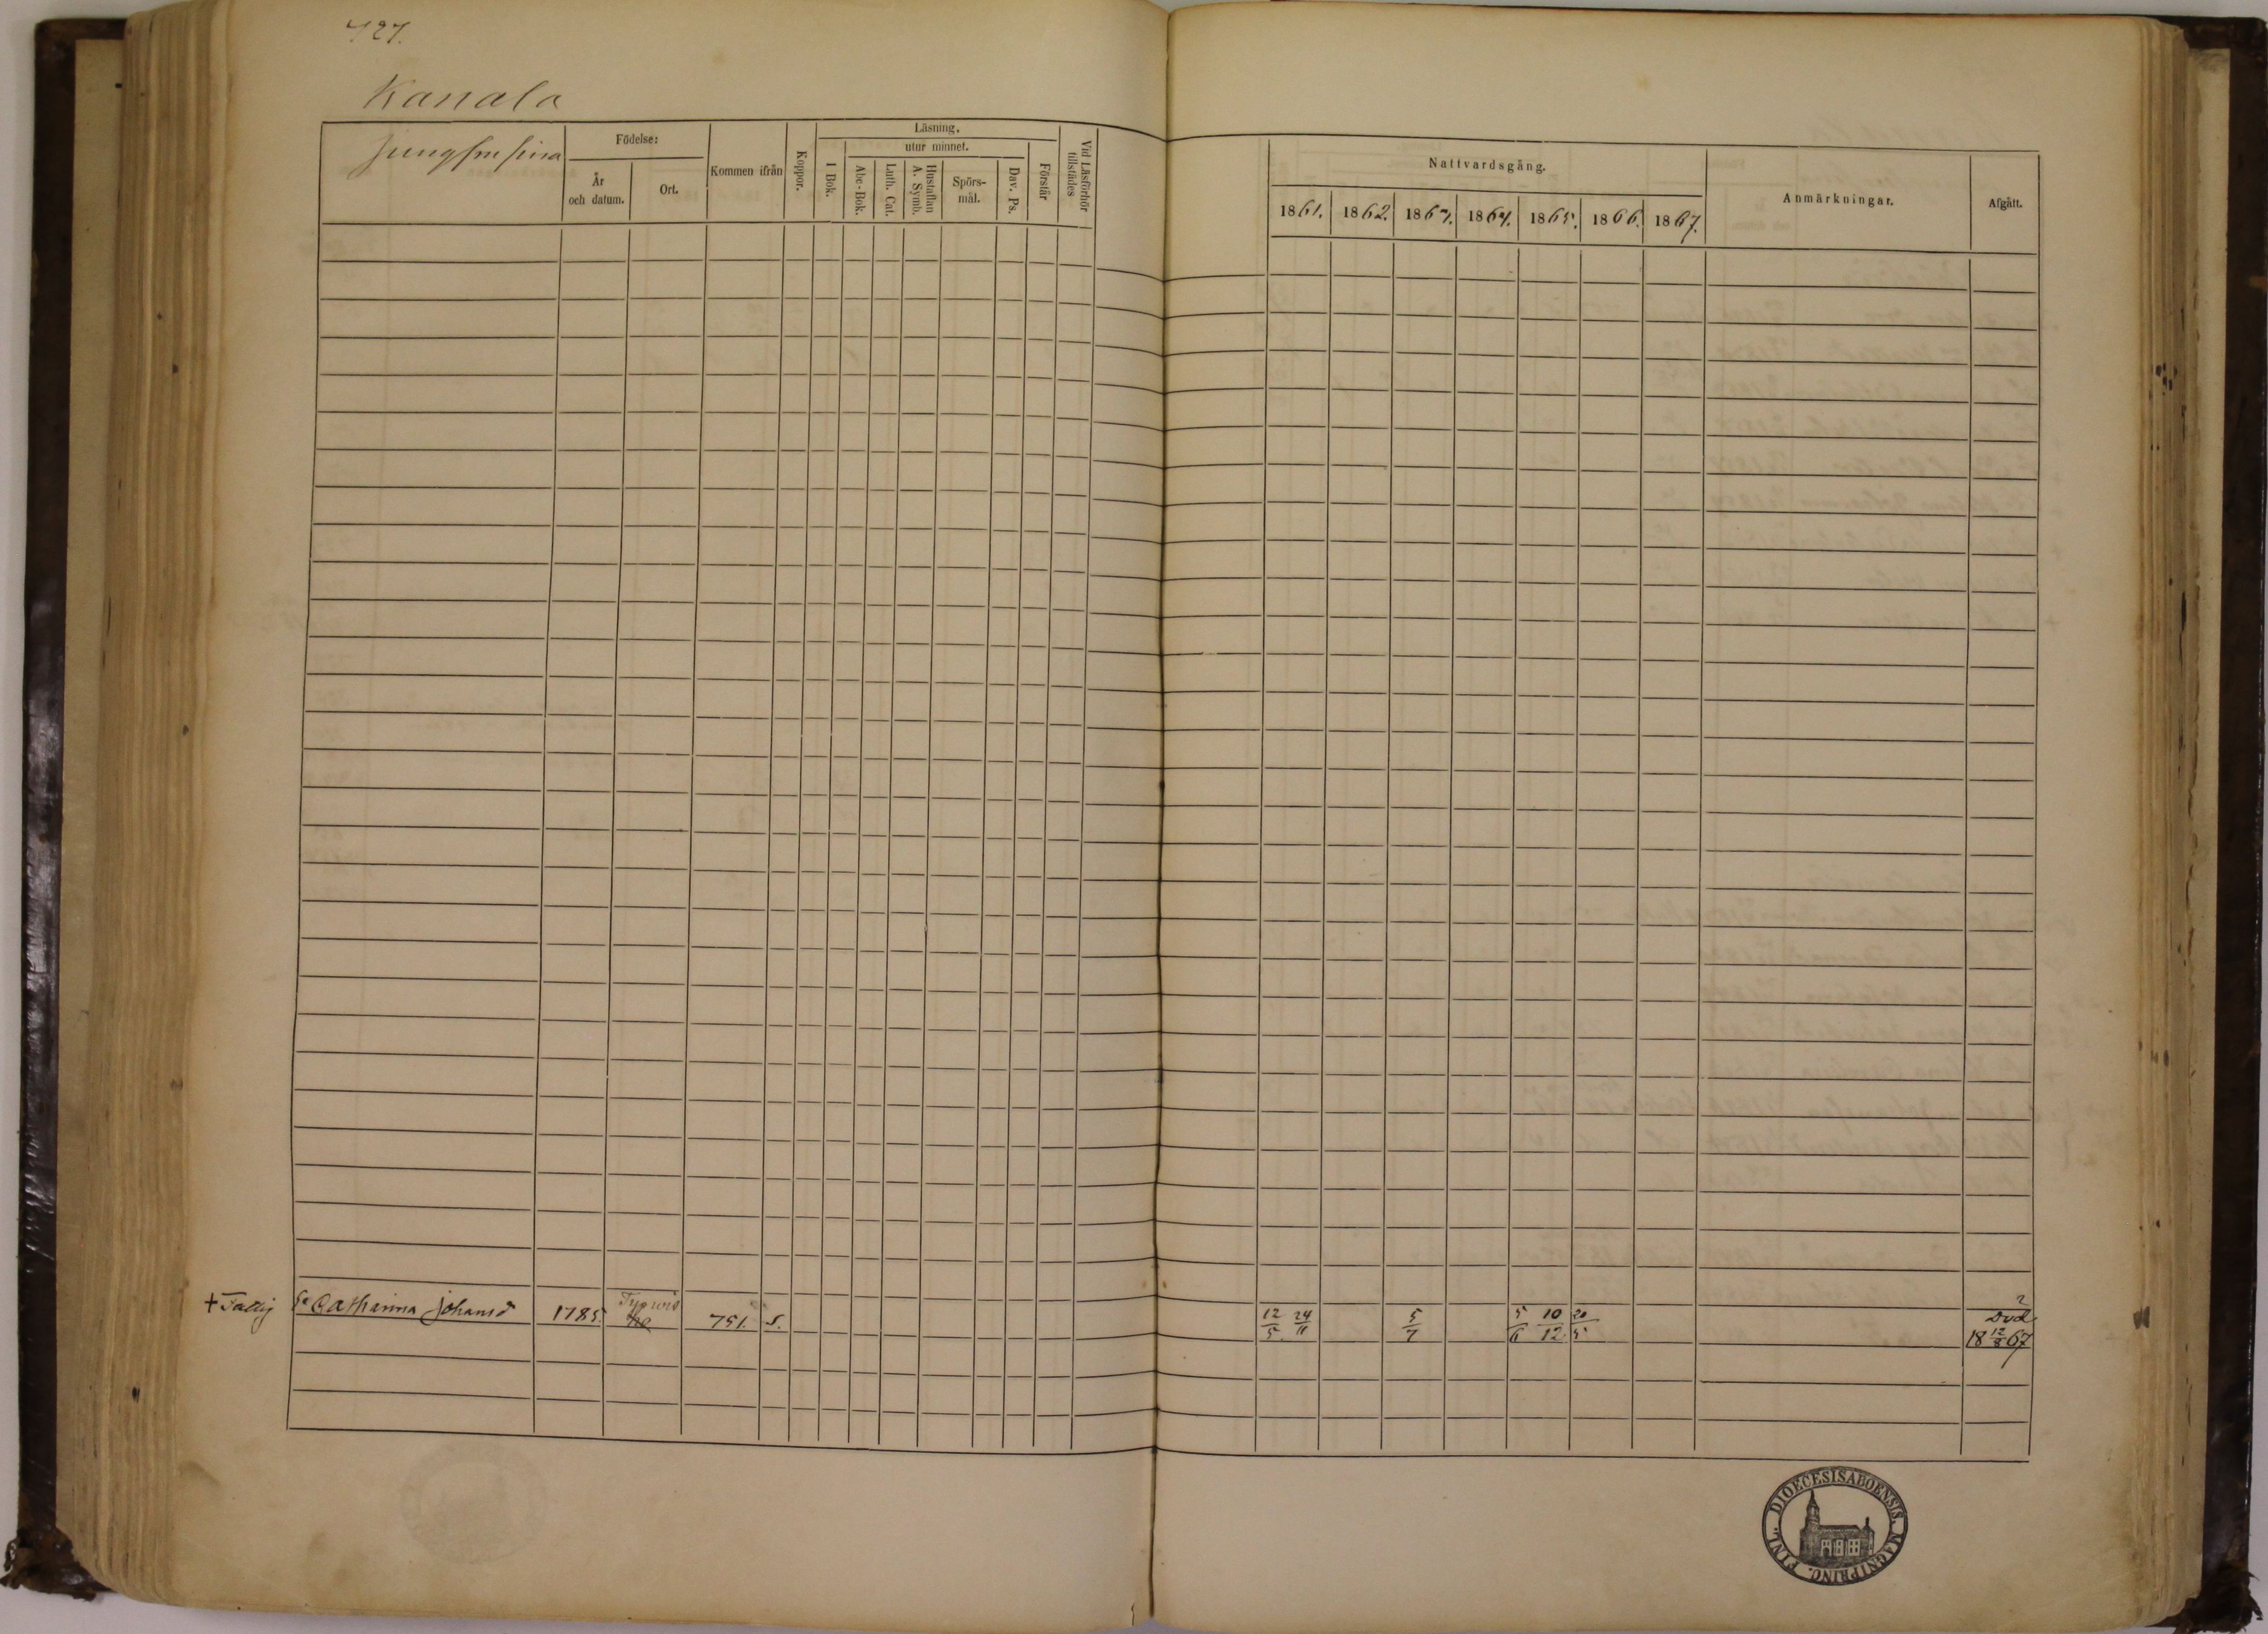 427.
Kanala
Födelse:
År och datum.
Ort.
Kommen ifrån
Koppor.
Läsning.
I Bok.
utur minnet.
Abc-Bok.
Luth. Cat.
Hustaflan A. Symb.
Spörs-mål.
Dav. Ps.
Förstår
Vid Läsförhör tillstädes
Nattvardsgång.
1861. 1862. 1863. 1864. 1865. 1866. 1867.
Anmärkningar.
Afgått.
+ Fattig Catharina Johansd 1785. 751. s. 12/5 24/11 5/7 5/6 10/12 20/5 Död 18 12/8 67
FINL. DIOECESIS ABOENSIS. MAGNI PRINC.